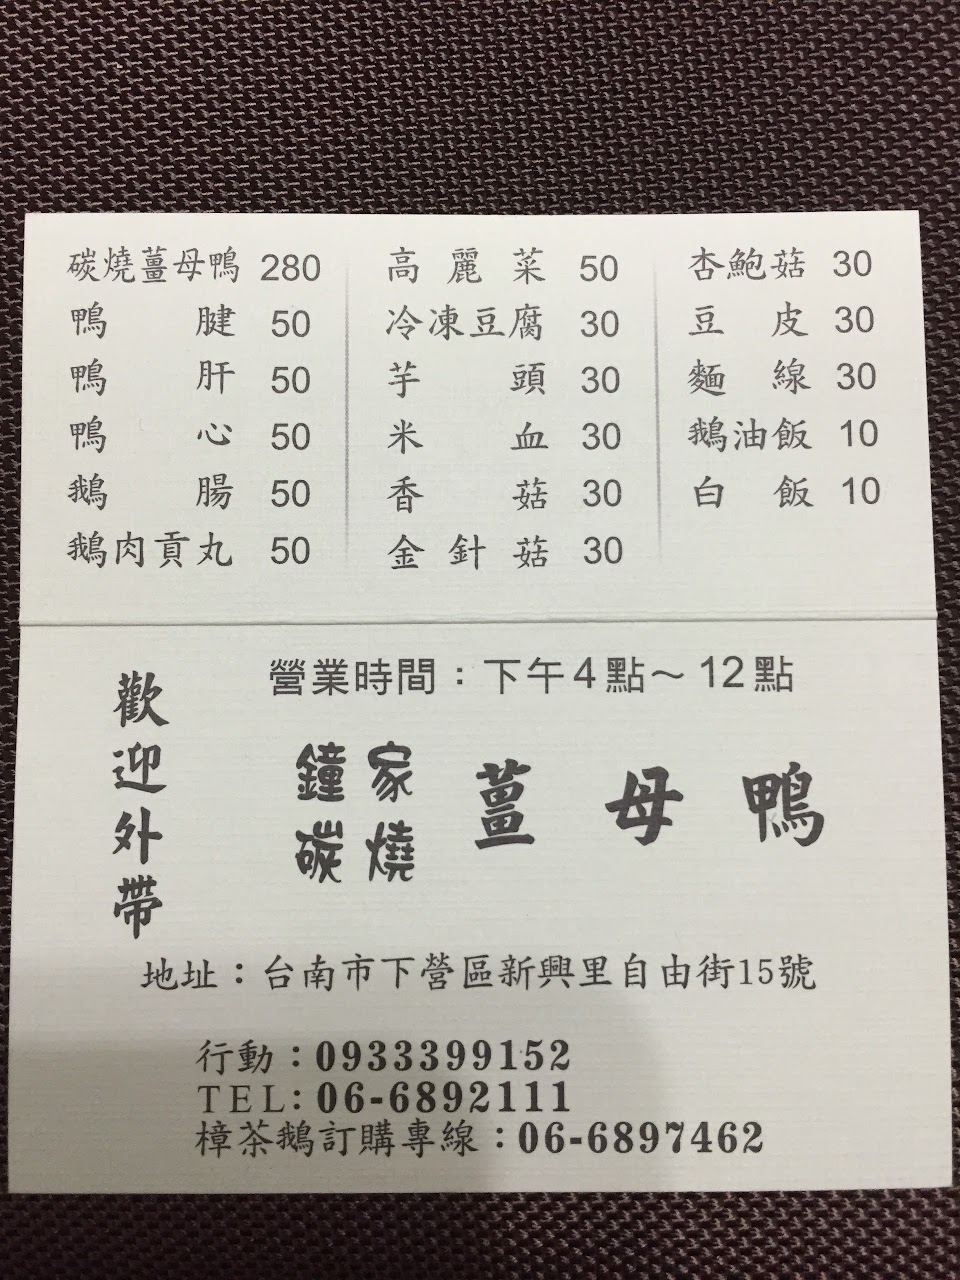 碳燒薑母鴨 280
鴨腱 50
鴨肝 50
鴨心 50
鵝腸 50
鵝肉貢丸 50
高麗菜 50
冷凍豆腐 30
芋頭 30
米血 30
香菇 30
金針菇 30
杏鮑菇 30
豆皮 30
麵線 30
鵝油飯 10
白飯 10
歡迎外帶
營業時間：下午4點～12點
鐘家
碳燒
薑母鴨
地址：台南市下營區新興里自由街15號
行動：0933399152
TEL: 06-6892111
樟茶鵝訂購專線：06-6897462